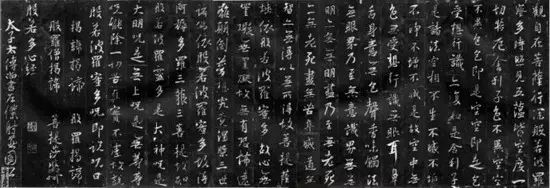 觀自在菩薩行深般若波羅
蜜多時照見五蘊皆空度一
切苦厄舍利子色不異空空
不異色色即是空空即是色
受想行識亦復如是舍利子
是諸法空相不生不滅不垢
不淨不增不減是故空中無
色無受想行識無眼耳鼻
舌身意無色聲香味觸法
無眼界乃至無意識界無無
明亦無無明盡乃至無老死
亦無老死盡無苦集滅道無
智亦無得以無所得故菩提薩
埵依般若波羅蜜多故心無
罣礙無罣礙故無有恐怖遠
離顛倒夢想究竟涅槃三世
諸佛依般若波羅蜜多故得
阿耨多羅三藐三菩提故知
般若波羅蜜多是大神咒是
大明咒是無上咒是無等等
咒能除一切苦真實不虛故說
般若波羅蜜多咒即說咒曰
揭諦揭諦 般羅揭諦
般羅僧揭諦 菩提莎婆訶
般若多心經
太子太傅尚書左僕射燕國